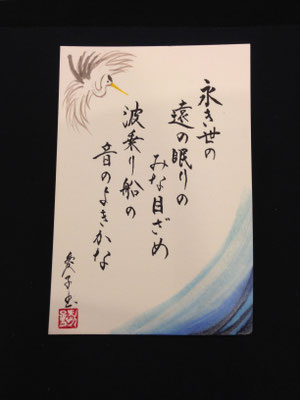 永き世の
遠の眠りの
みな目ざめ
波乗り船の
音のよきかな